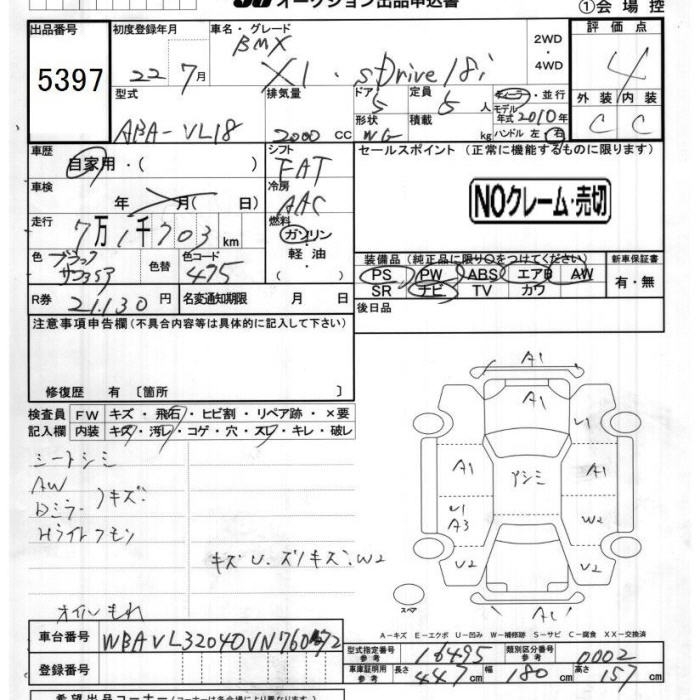 オークション出品申込書
①会場控
出品番号
5397
初度登録年月
22 7月
車名・グレード
BMX
X1・sDrive18i
2WD
・4WD
評価点
4
型式
ABA-VL18
排気量
2000 CC
ドア
5
形状
WG
定員
5人
積載
kg
ディーラー・並行
モデル年式 2010年
ハンドル 左・右
外装 内装
C C
車歴
自家用・( )
シフト
FAT
セールスポイント (正常に機能するものに限ります)
NOクレーム・売切
車検
年 月( 日)
冷房
AAC
走行
7万1千703km
燃料
ガソリン
・
軽油
色 ブラック
サファイア
色替
色コード
475
装備品 (純正品に限り○をつけてください)
新車保証書
PS PW ABS エアB AW
SR ナビ TV カワ
有・無
R券
21,130円
名変通知期限 月 日
後日品
注意事項申告欄(不具合内容等は具体的に記入して下さい)
修復歴 有〔箇所 〕
検査員記入欄
FW キズ・飛石・ヒビ割・リペア跡・×要
内装 キズ・汚レ・コゲ・穴・スレ・キレ・破レ
シートシミ
AW
Dミラー 〉キズ
Hライトクモリ
キズ U. ズノキズ. W2
オイルもれ
A1
A1
U1
A1
アシミ
A1
U1
A3
W2
U2
U2
スペア
A-キズ E-エクボ U-凹み W-補修跡 S-サビ C-腐食 XX-交換済
車台番号
登録番号
型式指定番号
参考
16495
類別区分番号
参考
0002
車検証明用
参考
長さ 447cm 幅 180cm 高さ 157cm
希望出品コーナー